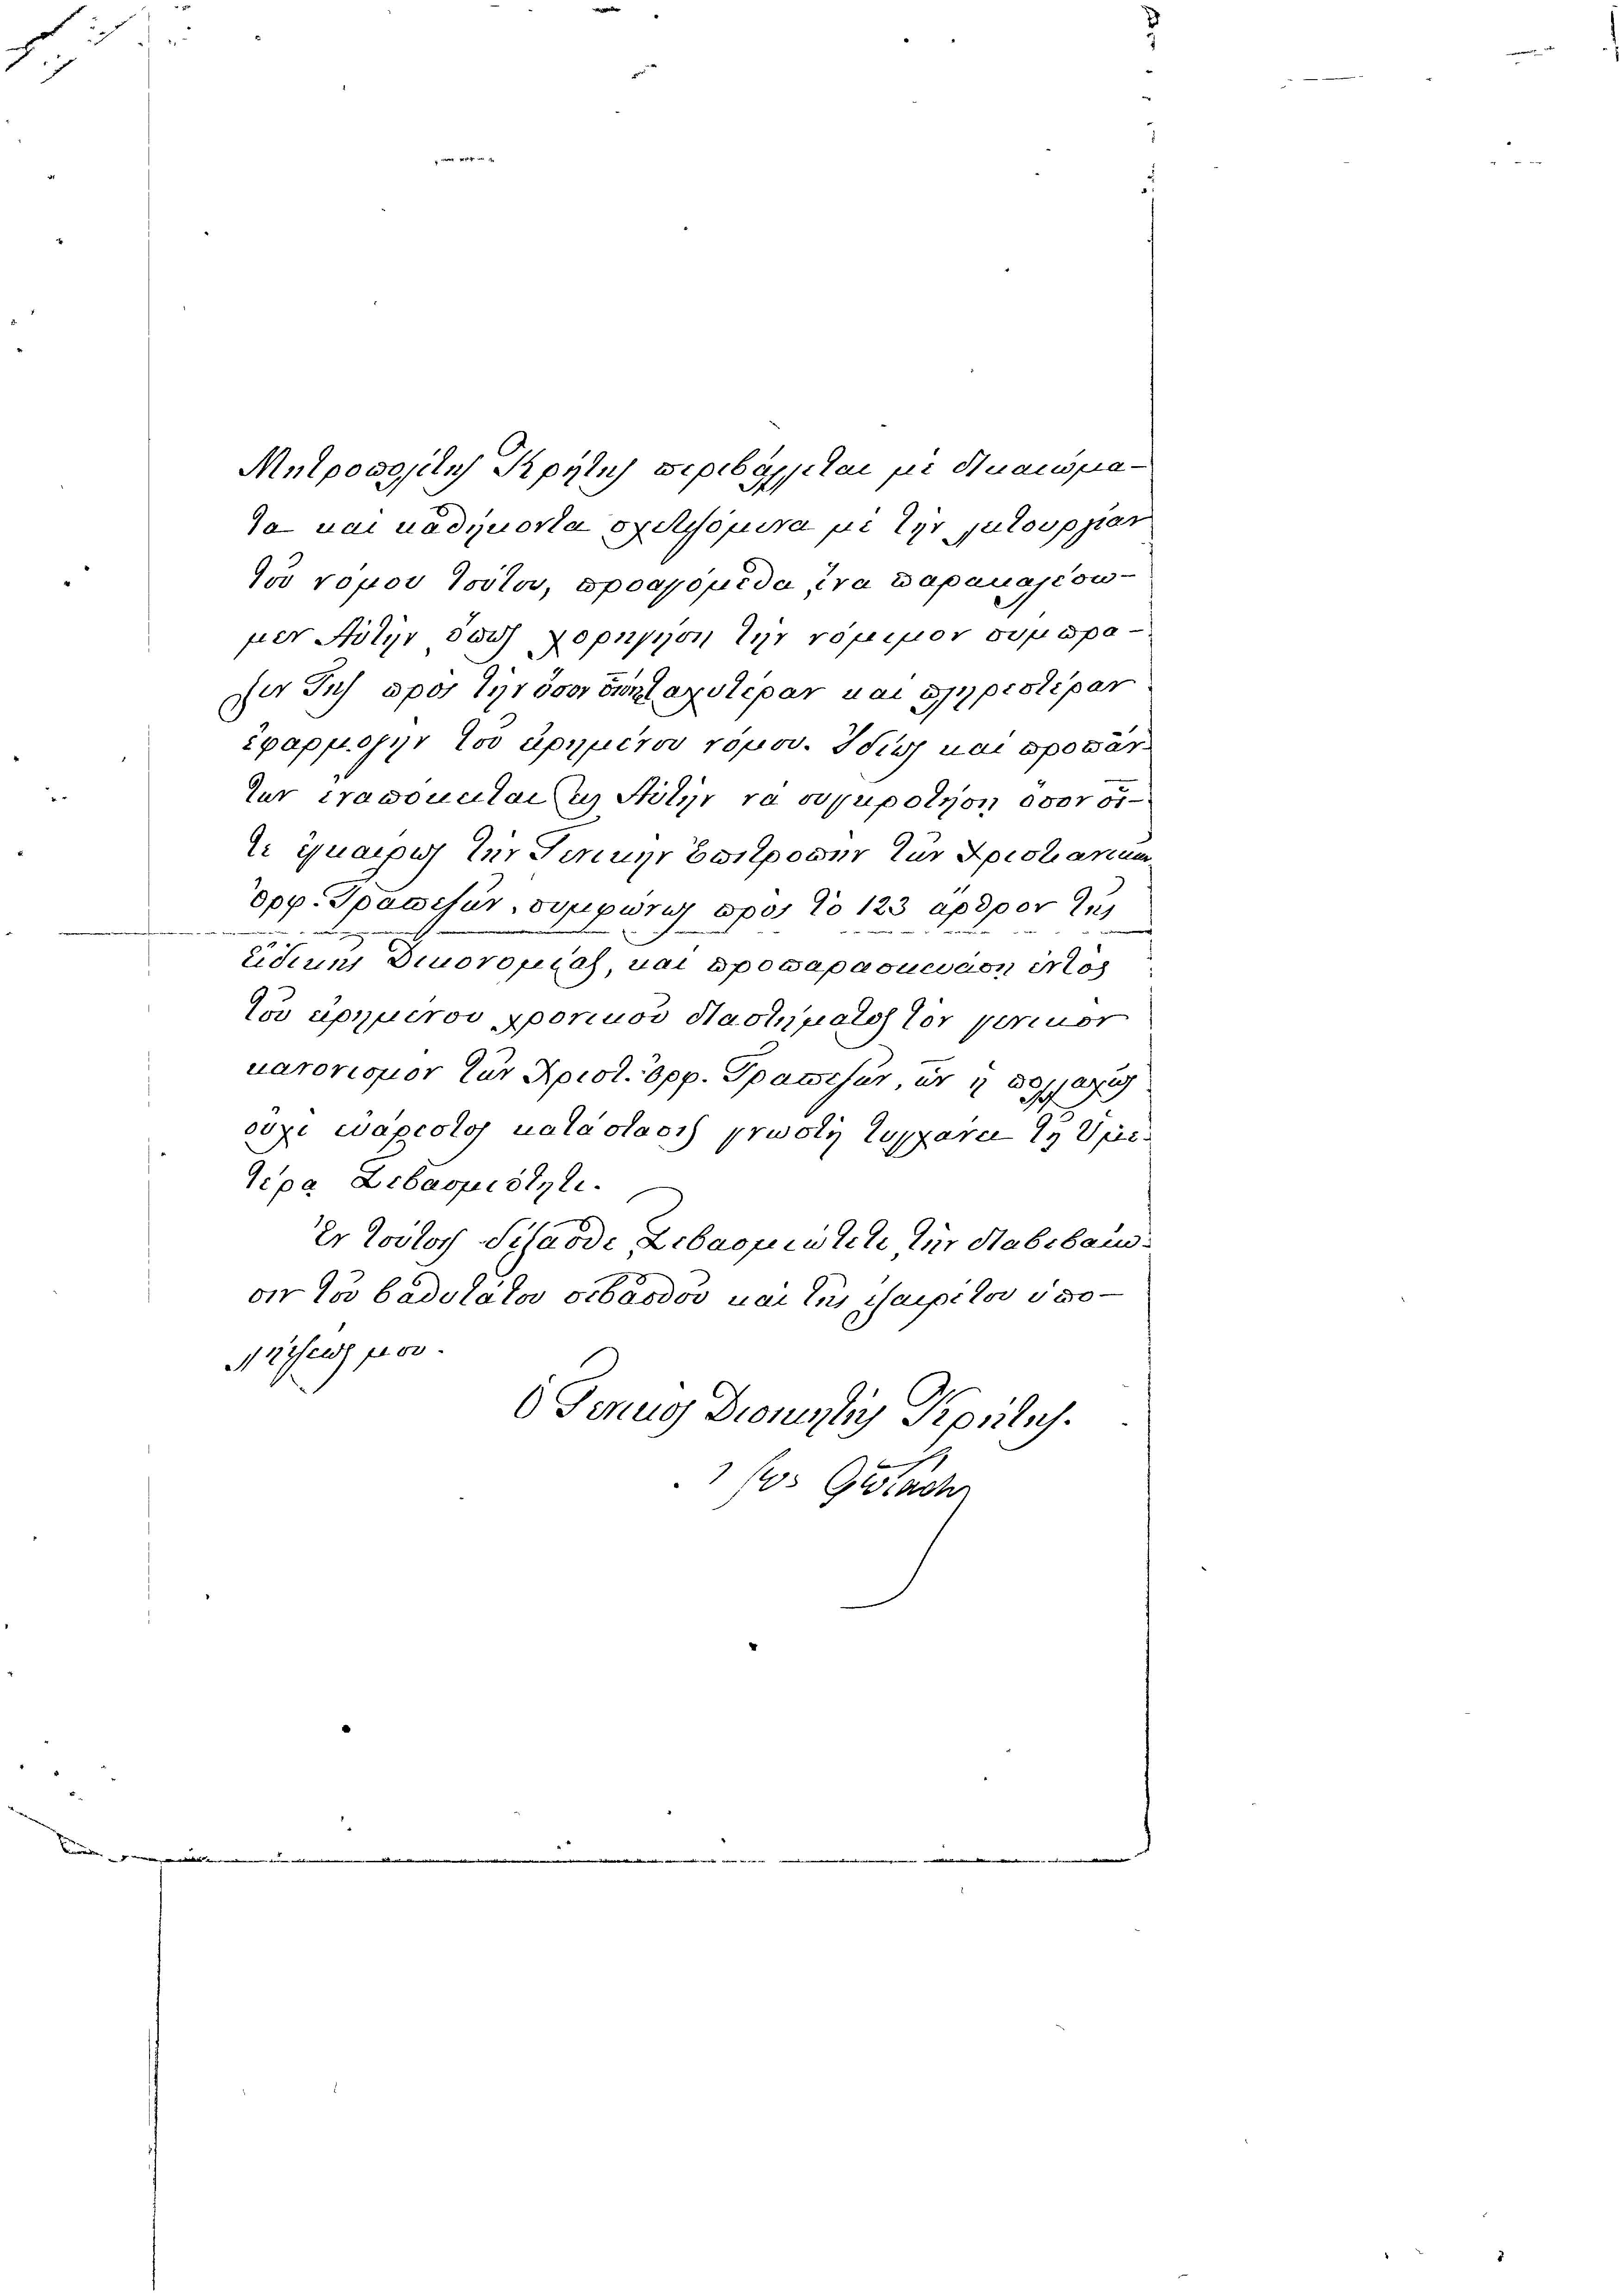 Μητροπολίτης Κρήτης περιβάλλεται με δικαιώμα-
τα και καθήκοντα σχετιζόμενα με την λειτουργίαν
του νόμου τούτου, προαγόμεθα, ίνα παρακαλέσω-
μεν Αυτήν όπως χορηγήση την νόμιμον σύμπρα-
ξίν Της προς την όσον συντακτοτέραν και πληρεστέραν
εφαρμογήν του ειρημένου νόμου. Ιδίως και προ πάν-
των εναπόκειται εις Αυτήν να συγκροτήση όσον οί-
τε εγκαίρως την Γενικήν Επιτροπήν των Χριστιανικών
Ορφ. Τραπεζών, συμφώνως προς το 123 άρθρον της
ειδικής Δικονομίας, και προπαρασκευάση εντός
του ειρημένου χρονικού διαστήματος τον γενικόν
κανονισμόν των Χριστ. Ορφ. Τραπεζών, ων η πολλαχώς
ουχί ευάρεστος κατάστασις γνωστή τυγχάνει τη Υμε-
τέρα Σεβασμιότητι.
Εν τούτοις δέξασθε, Σεβασμιώτατε, την διαβεβαίω-
σιν του βαθυτάτου σεβασμού και της εξαιρέτου υπο-
λήψεώς μου.
Ο Γενικός Διοικητής Κρήτης.